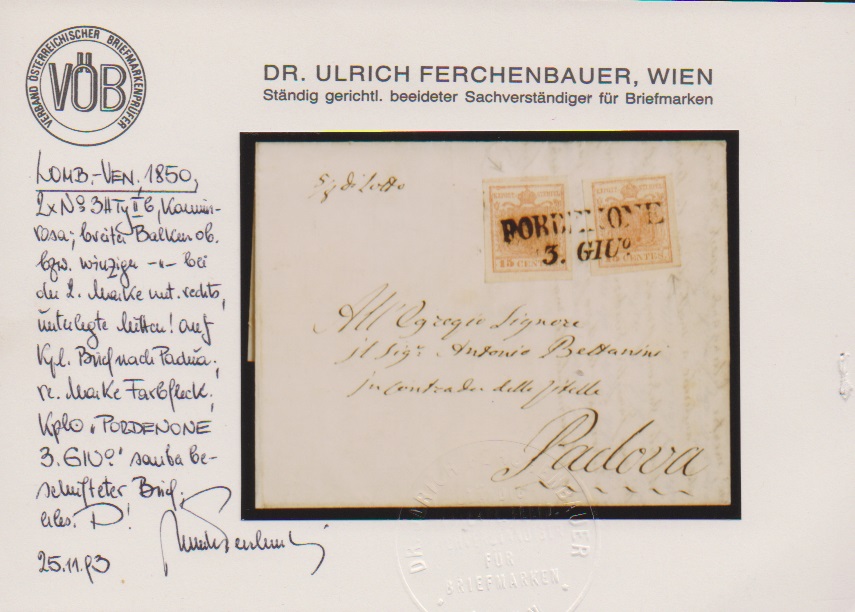 VERBAND ÖSTERREICHISCHER BRIEFMARKENPRÜFER
VÖB
DR. ULRICH FERCHENBAUER, WIEN
Ständig gerichtl. beeideter Sachverständiger für Briefmarken
LOMB.-VEN. 1850,
2x No 3H Ty II b, Karmin-
rosa; breiter Balken ob.
bzw. winziger -"- bei
der 2. Marke unt. rechts,
unterlegte Mitten! auf
kpl. Brief nach Padua;
re. Marke Farbfleck.
"PORDENONE
3. GIUo." sauber be-
schrifteter Brief.
P!
25.11.93
PORDENONE
3. GIUo
15 CENTES
All'Egregio Signore
il Sigr Antonio Bettanini
in Contrada delle
Padova
FÜR
BRIEFMARKEN